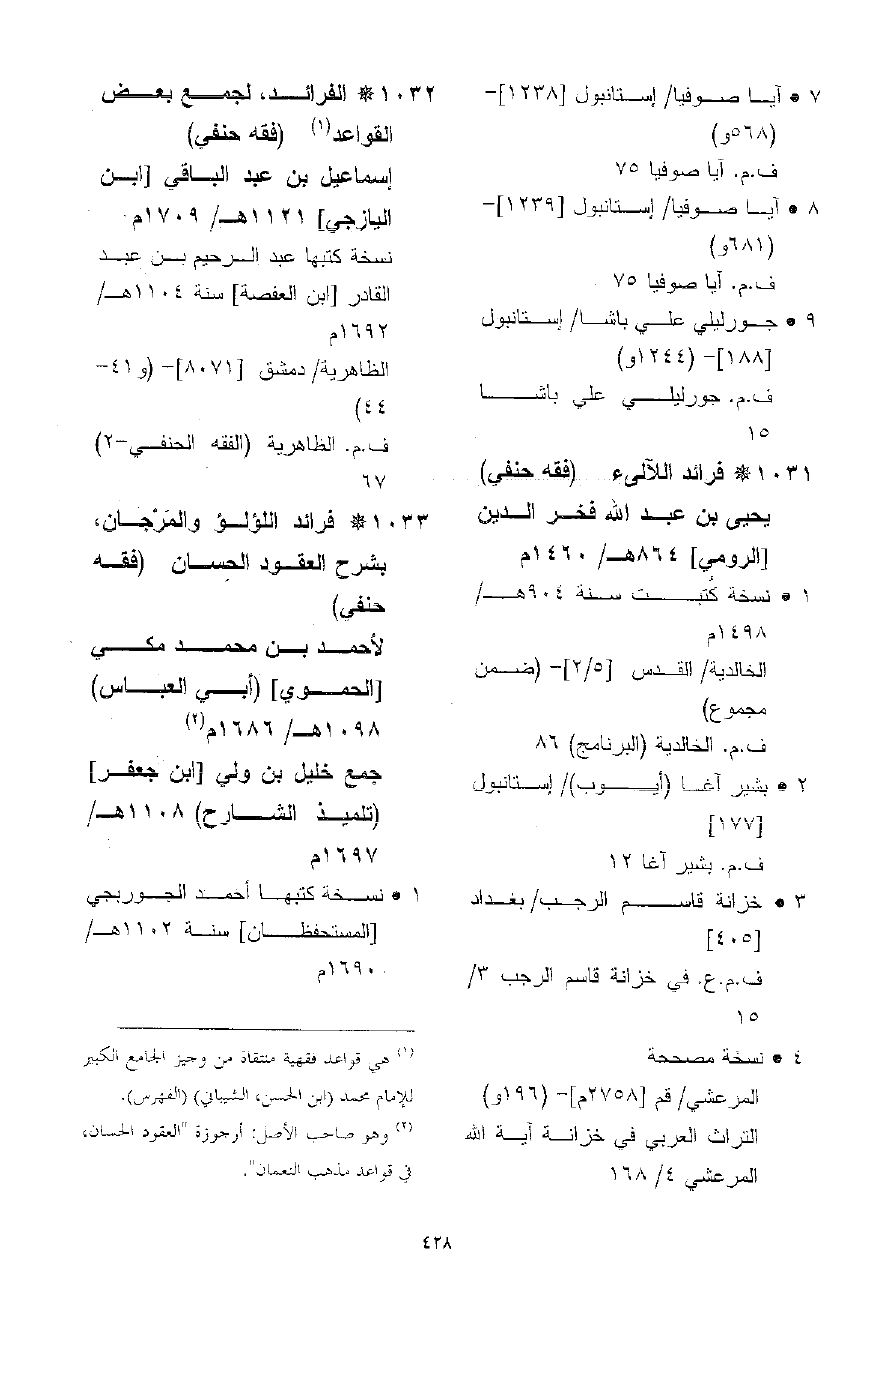 ٧ • آيا صوفيا/ إستانبول [١٢٣٨]-
(٥٦٨و)
ف.م. آيا صوفيا ٧٥
٨ • آيا صوفيا/ إستانبول [١٢٣٩]-
(٦٨١و)
ف.م. آيا صوفيا ٧٥
٩ • جورليلي علي باشا/ إستانبول
[١٨٨]- (١٢٤٤و)
ف.م. جورليلي علي باشا
١٥
١٠٣١ * فرائد اللآلىء (فقه حنفي)
يحيى بن عبد الله فخر الدين
[الرومي] ٨٦٤هـ/ ١٤٦٠م
١ • نسخة كُتبت سنة ٩٠٤هـ/
١٤٩٨م
الخالدية/ القدس [٢/٥]- (ضمن
مجموع)
ف.م. الخالدية (البرنامج) ٨٦
٢ • بشير آغا (أيوب)/ إستانبول
[١٧٧]
ف.م. بشير آغا ١٢
٣ • خزانة قاسم الرجب/ بغداد
[٤٠٥]
ف.م.ع. في خزانة قاسم الرجب ٣/
١٥
٤ • نسخة مصححة
المرعشي/ قم [٢٧٥٨م]- (١٩٦و)
التراث العربي في خزانة آية الله
المرعشي ٤/ ١٦٨
١٠٣٢ * الفرائد، لجمع بعض
القواعد(١) (فقه حنفي)
إسماعيل بن عبد الباقي [ابن
اليازجي] ١١٢١هـ/ ١٧٠٩م
نسخة كتبها عبد الرحيم بن عبد
القادر [ابن العفصة] سنة ١١٠٤هـ/
١٦٩٢م
الظاهرية/ دمشق [٨٠٧١]- (و٤١-
٤٤)
ف.م. الظاهرية (الفقه الحنفي-٢)
٦٧
١٠٣٣ * فرائد اللؤلؤ والمَرْجان،
بشرح العقود الحسان (فقه
حنفي)
لأحمد بن محمد مكي
[الحموي] (أبي العباس)
١٠٩٨هـ/ ١٦٨٦م(٢)
جمع خليل بن ولي [ابن جعفر]
(تلميذ الشارح) ١١٠٨هـ/
١٦٩٧م
١ • نسخة كتبها أحمد الجوربجي
[المستحفظان] سنة ١١٠٢هـ/
١٦٩٠م
(١) هي قواعد فقهية منتقاة من وجيز الجامع الكبير
للإمام محمد (ابن الحسن، الشيباني) (الفهرس).
(٢) وهو صاحب الأصل: أرجوزة "العقود الحسان،
في قواعد مذهب النعمان".
٤٢٨